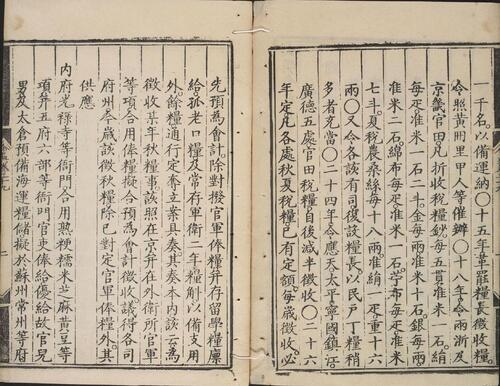 一千名以備運納〇十五年革罷糧長徵收糧
令照黃冊里甲人等催辦〇十八年令兩浙及
京畿官田凡折收稅糧鈔每五貫准米一石絹
每疋准米一石二斗金每兩准米十石銀每兩
准米二石綿布每疋准米一石苧布每疋准米
七斗夏稅農桑絲每十八兩准絹一疋重十六
兩〇又令各該有司復設糧長以民戶丁糧稍
多者充當〇二十四年令應天太平寧國鎮江
廣德五處官田稅糧自後減半徵收〇二十六
年定凡各處秋夏稅糧已有定額每歲徵收必
先預為會計除對撥官軍俸糧并存留學糧廩
給孤老口糧及常存軍衛二年糧斛以備支用
外餘糧通行定奪立案具奏其奏本內該云為
徵收某年秋糧事該照在京并在外衛所官軍
等項合用俸糧擬合預為會計徵收議得各司
府州奉歲該徵秋糧除已對定官軍俸糧外其
供應
內府光祿寺等衙門合用熟粳糯米芝麻黃豆等
項并五府六部等衙門官吏俸給優給故官兒
男及太倉預備海運糧儲擬於蘇州常州等府